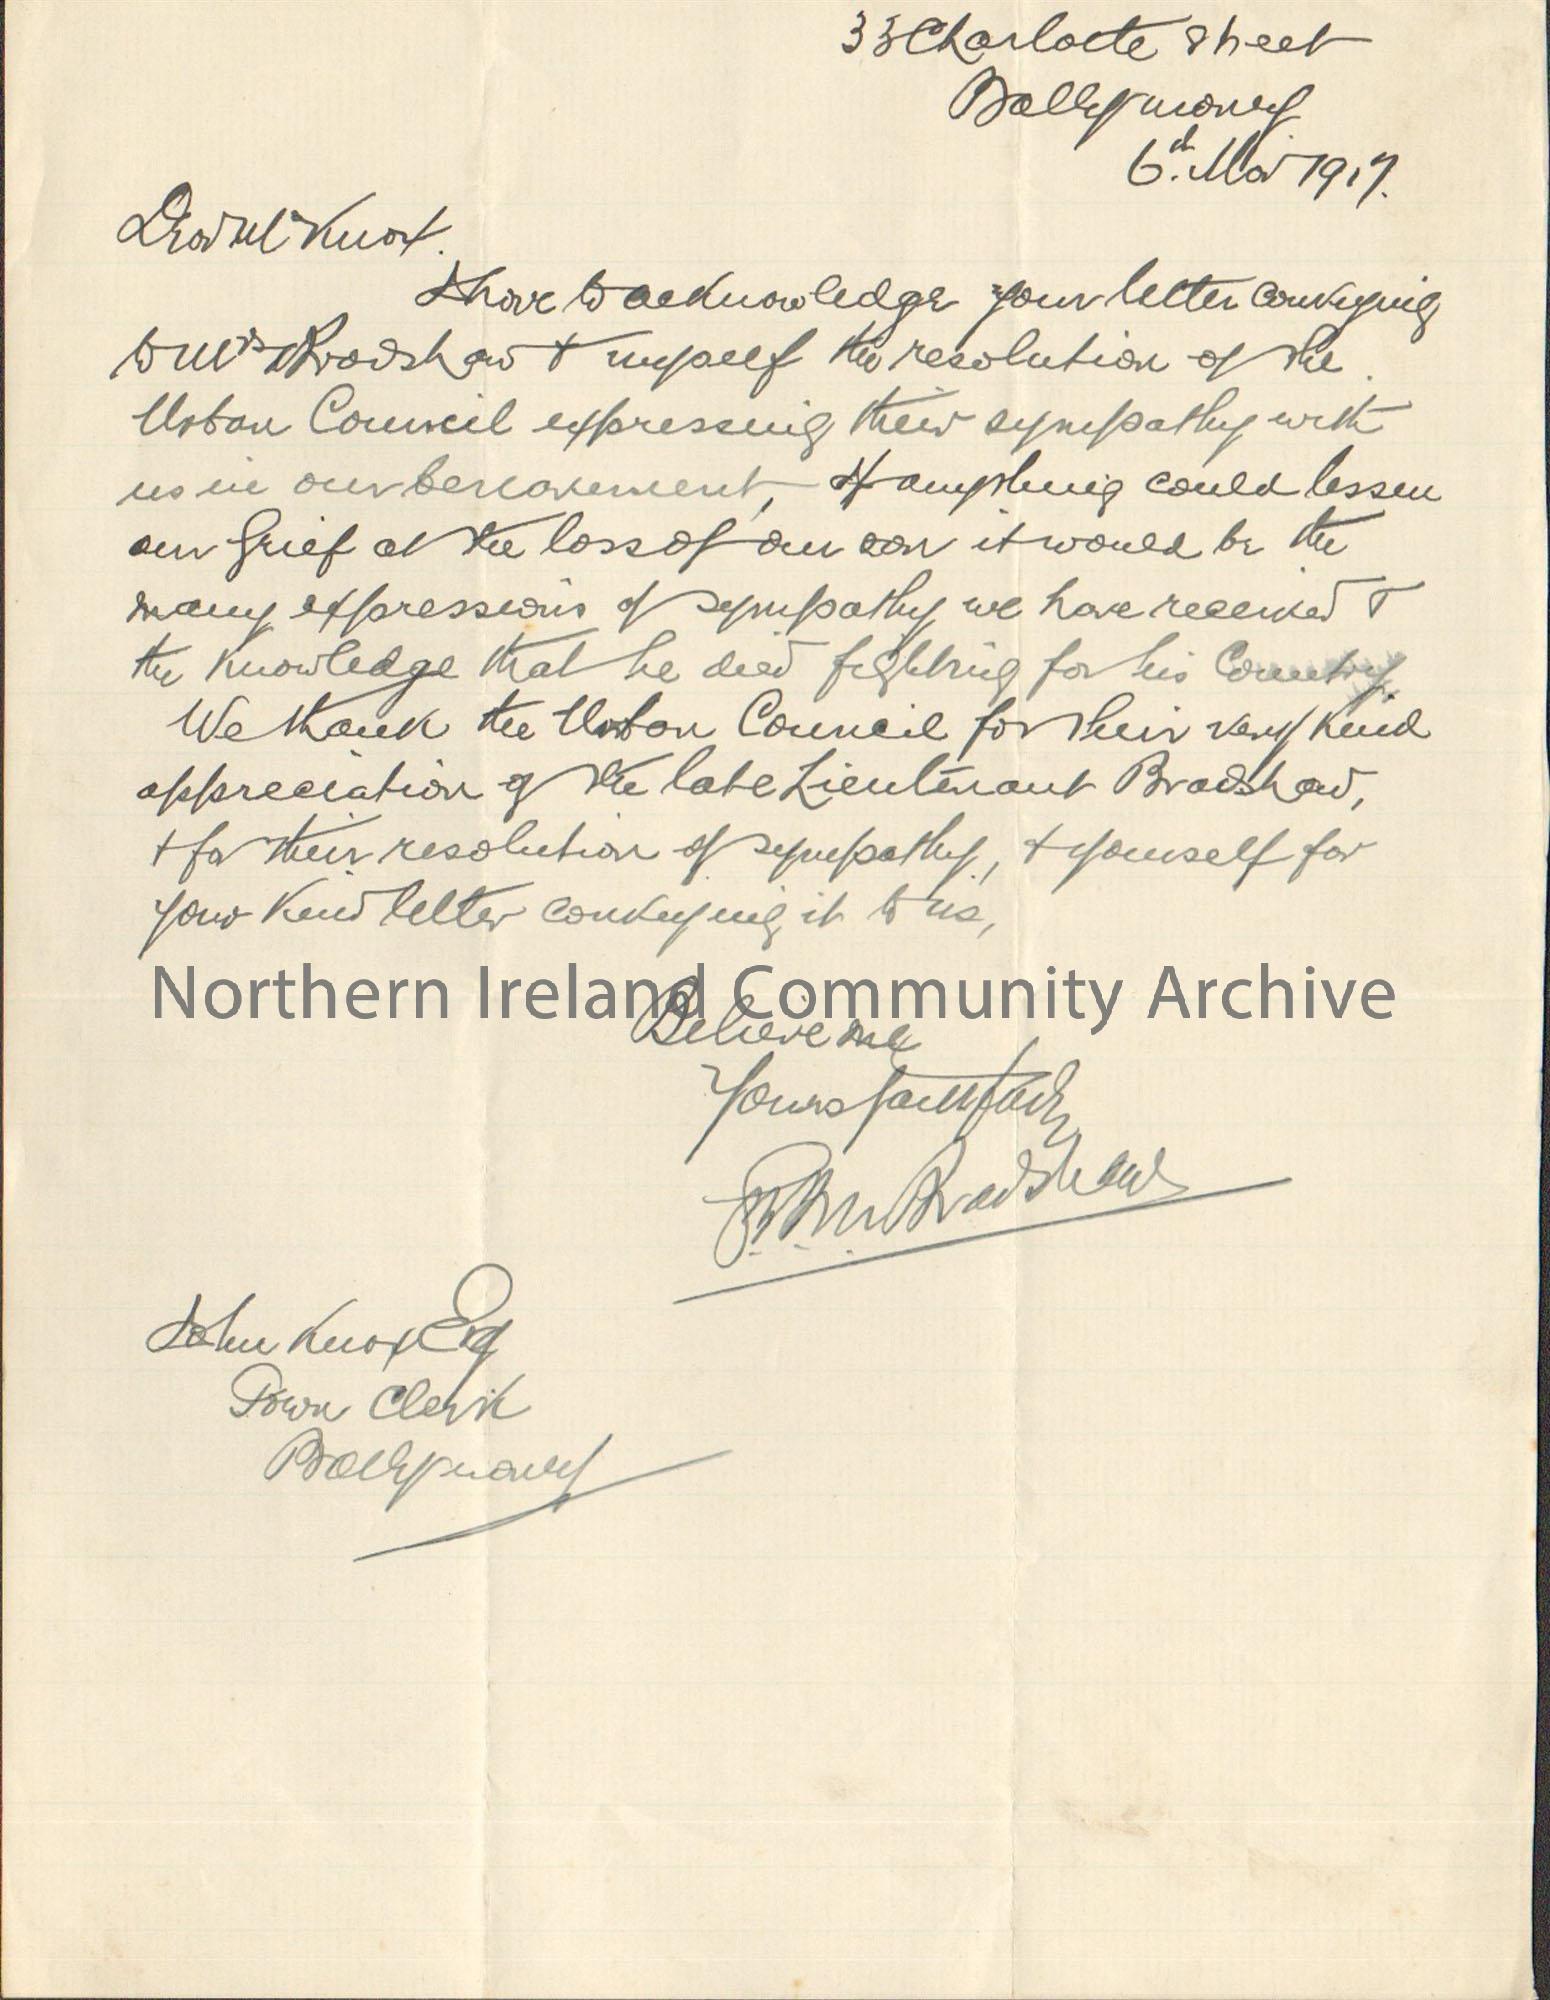 33 Charlotte Street
Ballymoney
6th. Mar 1917.
Dear Mr Knox.
I have to acknowledge your letter conveying
to Mrs Bradshaw & myself the resolution of the
Urban Council expressing their sympathy with
us in our bereavement, If anything could lessen
our Grief at the loss of our son it would be the
many expressions of sympathy we have received &
the knowledge that he died fighting for his Country.
We thank the Urban Council for their very kind
appreciation of the late Lieutenant Bradshaw,
& for their resolution of sympathy, & yourself for
your kind letter conveying it to us,
Northern Ireland Community Archive
Believe me
Yours faithfully
Bradshaw
John Knox Esq
Town Clerk
Ballymoney